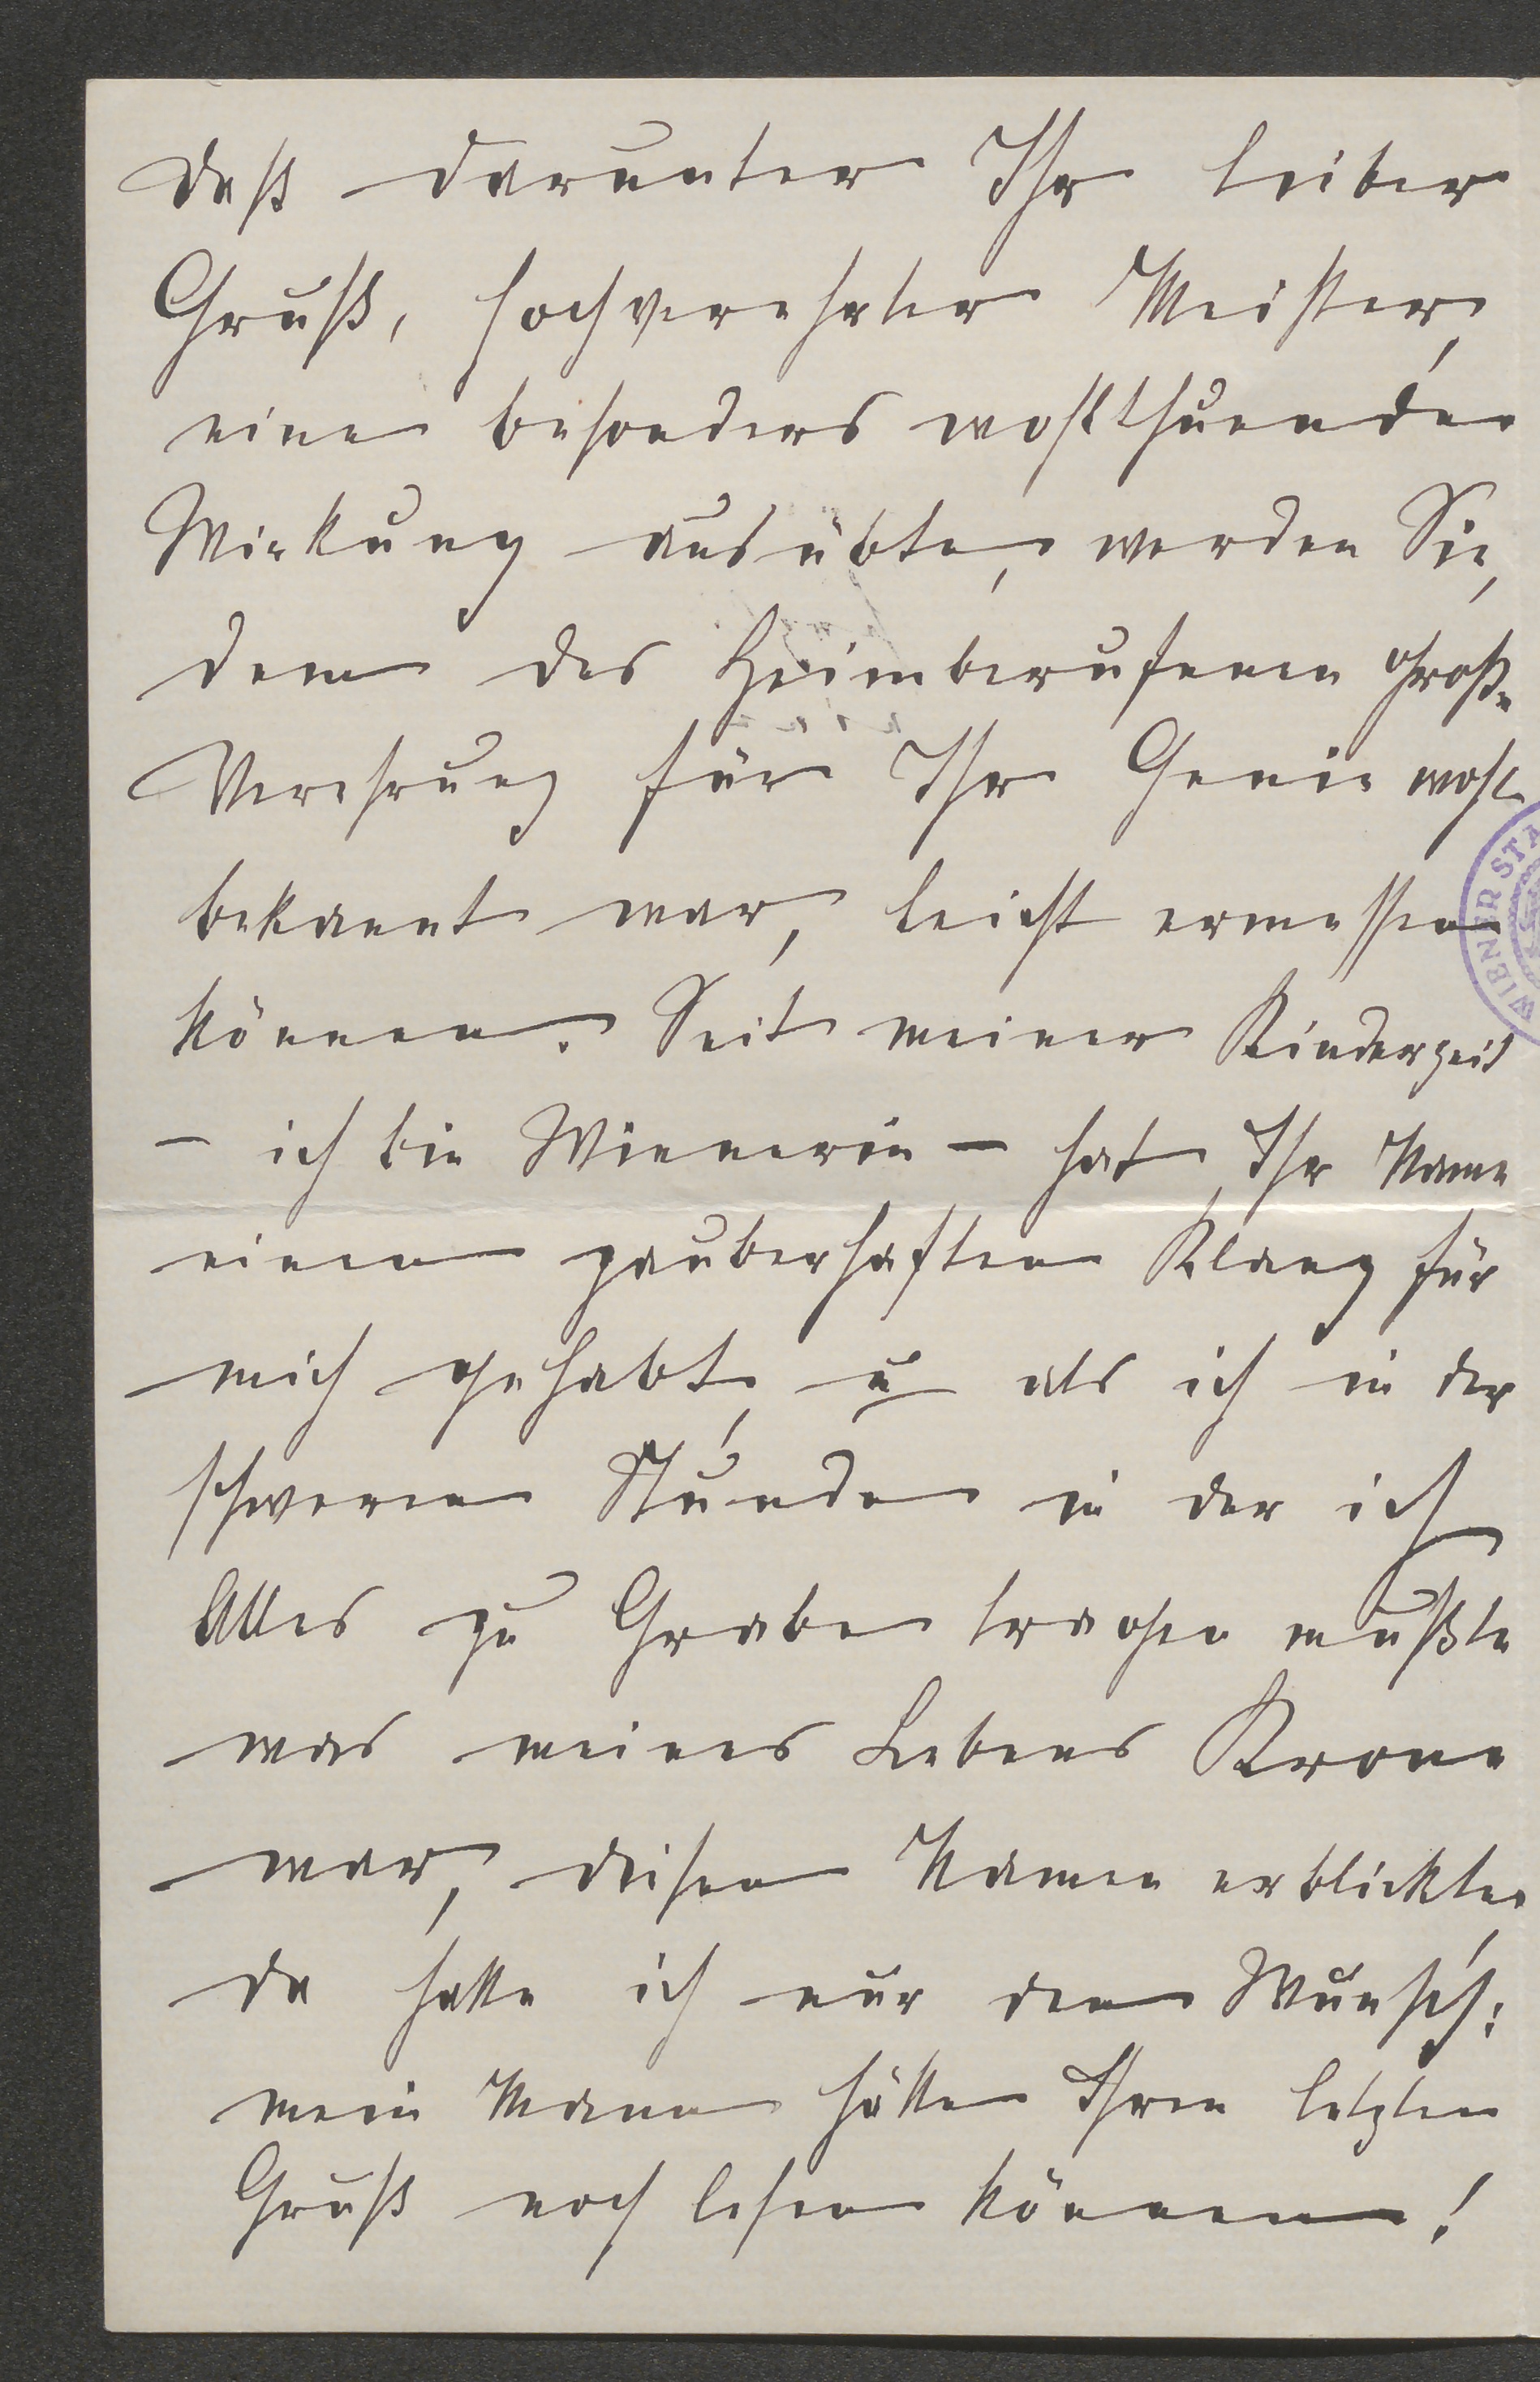 daß darunter Ihr lieber
Gruß, hochverehrter Meister,
eine besonders wohlthuende
Wirkung ausübte, werden Sie,
dem des Heimberufenen große
Verehrung für Ihr Genie wohl
bekannt war, leicht ermessen
können. Seit meiner Kinderzeit
– ich bin Wienerin – hat Ihr Name
einen zauberhaften Klang für
mich gehabt, u als ich in der
schweren Stunde in der ich
Alles zu Grabe tragen mußte
was meines Lebens Krone
war, diesen Namen erblickte,
da hatte ich nur den Wunsch:
mein Mann hätte Ihren letzten
Gruß noch lesen können!
WIENER STA